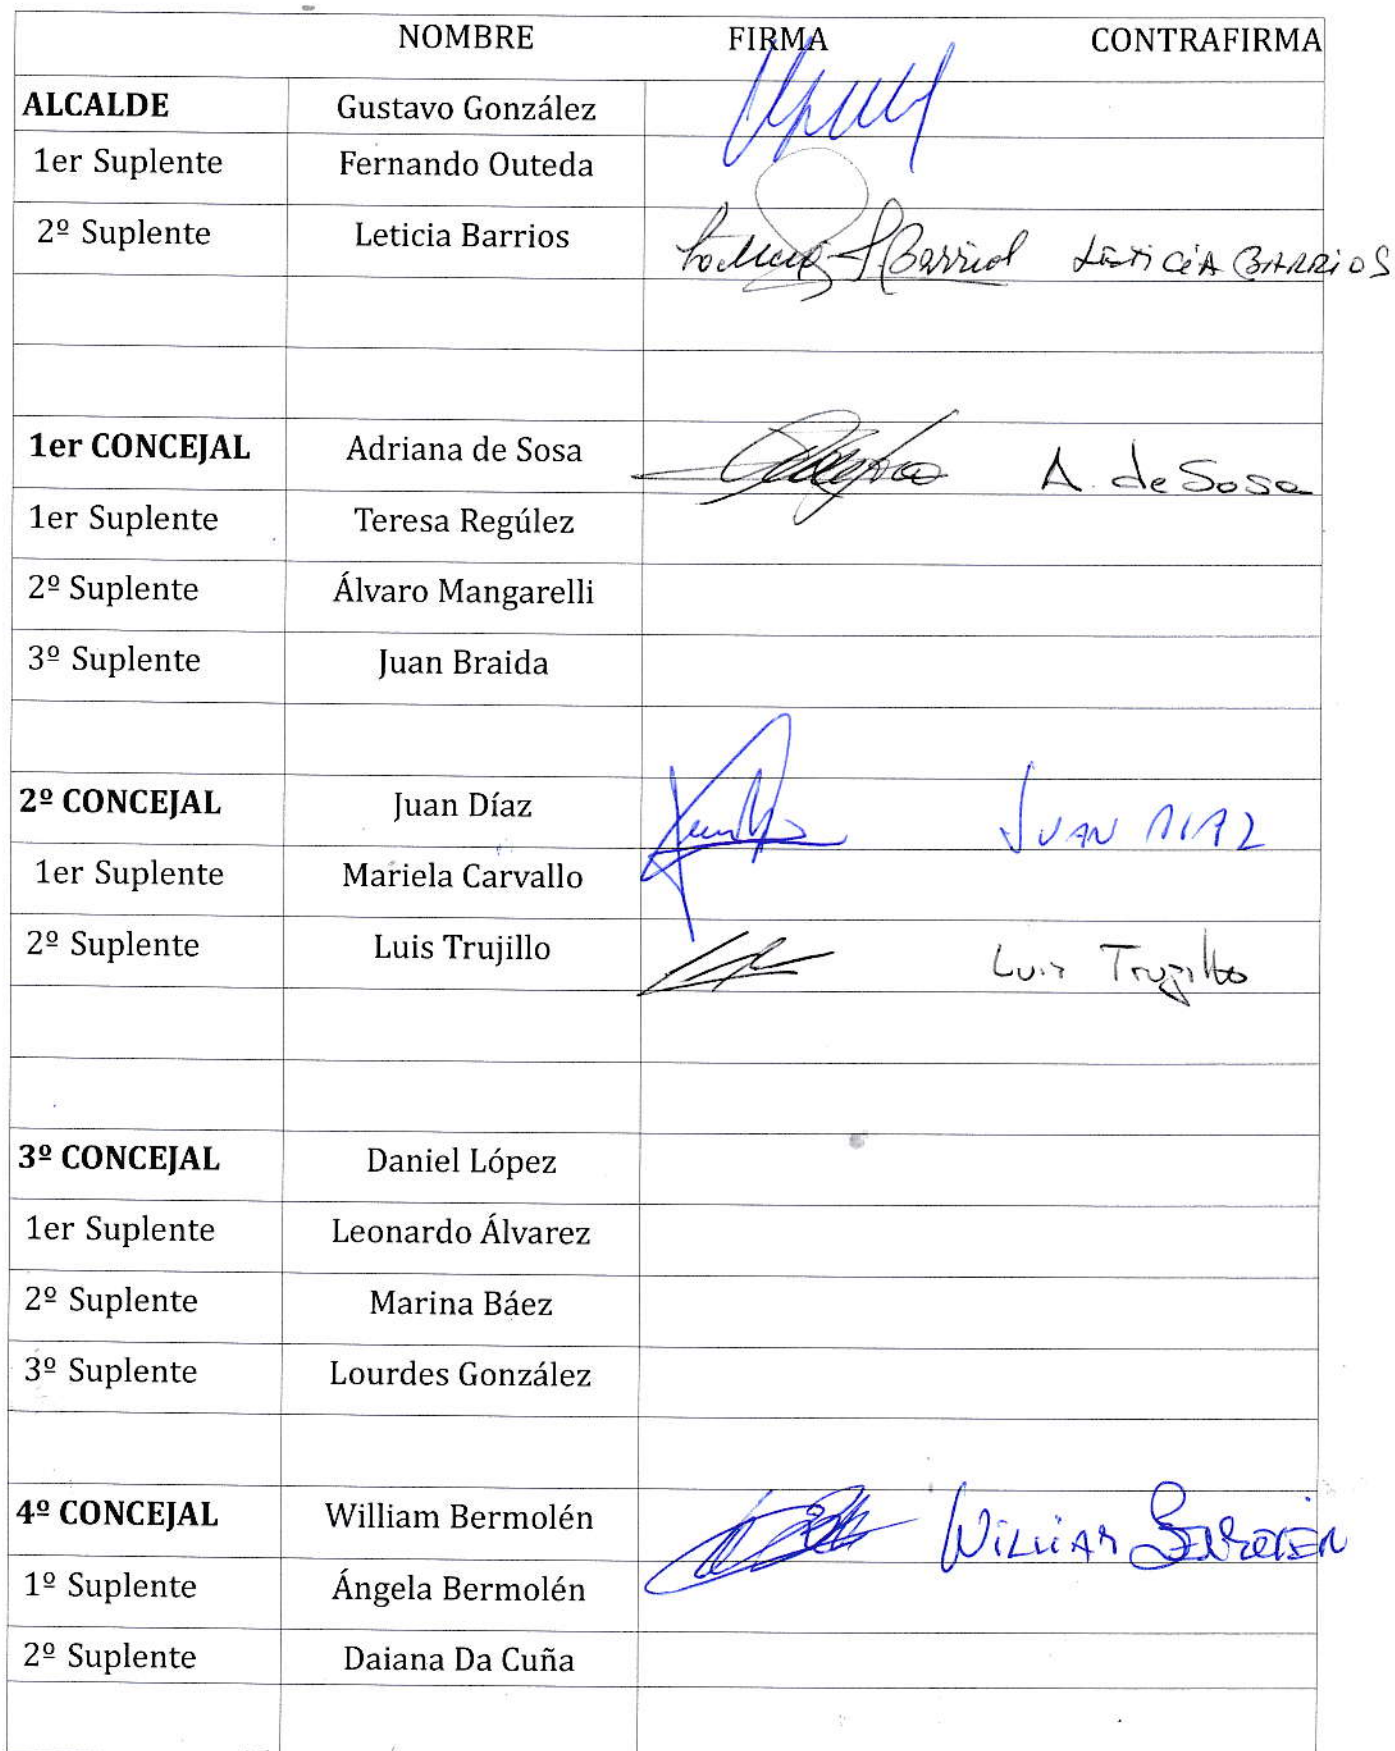 NOMBRE FIRMA CONTRAFIRMA
ALCALDE Gustavo González
1er Suplente Fernando Outeda
2º Suplente Leticia Barrios LETICIA BARRIOS
1er CONCEJAL Adriana de Sosa A. de Sosa
1er Suplente Teresa Regúlez
2º Suplente Álvaro Mangarelli
3º Suplente Juan Braida
2º CONCEJAL Juan Díaz JUAN DIAZ
1er Suplente Mariela Carvallo
2º Suplente Luis Trujillo Luis Trujillo
3º CONCEJAL Daniel López
1er Suplente Leonardo Álvarez
2º Suplente Marina Báez
3º Suplente Lourdes González
4º CONCEJAL William Bermolén WILLIAM BERMOLEN
1º Suplente Ángela Bermolén
2º Suplente Daiana Da Cuña